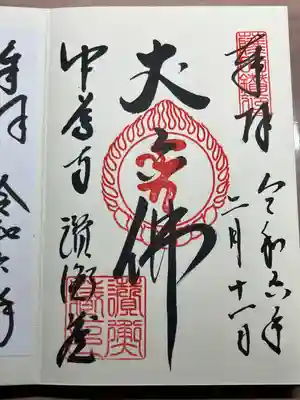 奉拝
令和六年
二月十一日
丈六佛
中尊寺 讃衡蔵
讃衡蔵印
奉拝
令和六年